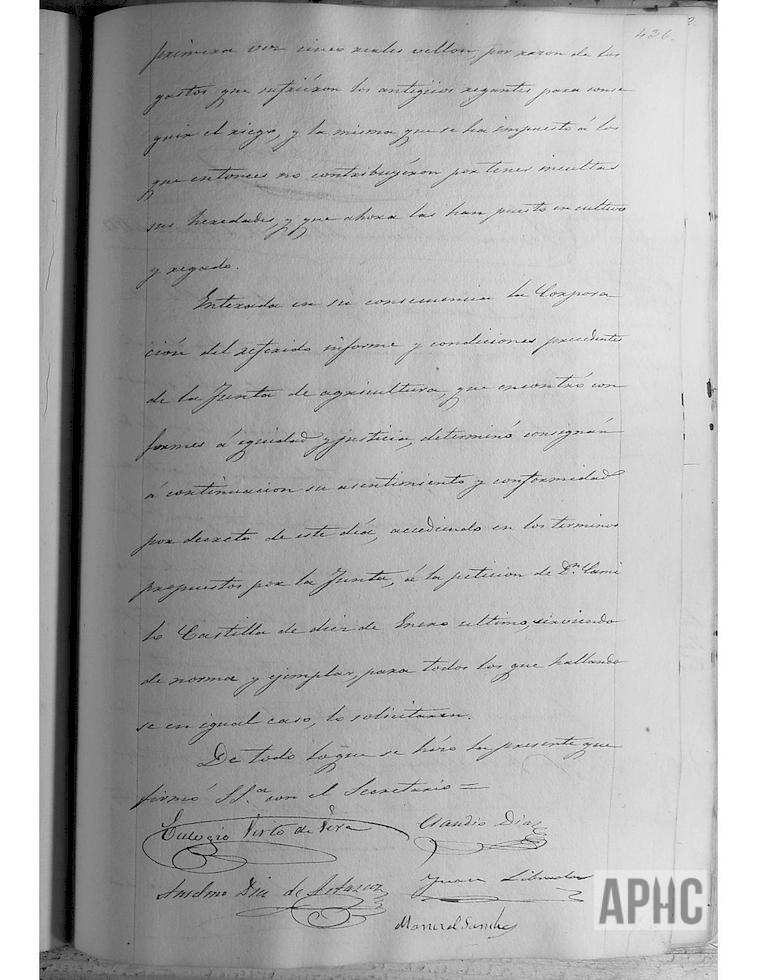 2.
436.
primera vez cinco reales vellon, por razon de los
gastos que sufriéron los antigüos regantes para conse
guir el riego, y la misma que se ha impuesto á los
que entonces no contribuyéron por tener incultas
sus heredades, y que ahora las han puesto en cultivo
y regado.
Enterada en su consecuencia la Corpora
ción del referido informe y condiciones precedentes
de la Junta de agricultura, que encontró con
formes á equidad y justicia, determinó consignar
á continuacion su asentimiento y conformidad
por decreto de este día, accediendo en los terminos
propuestos por la Junta, á la peticion de Dn. Cami
lo Castilla de diez de Enero ultimo, sirviendo
de norma y ejemplar, para todos los que hallando
se en igual caso, lo solicitaren.
De todo lo que se hizo la presente que
firmó SSa. con el Secretario =
Eulogio Virto de Vera
Claudio Diaz
Anselmo Diez de
Juan Librador
Manuel Sanchez
APHC